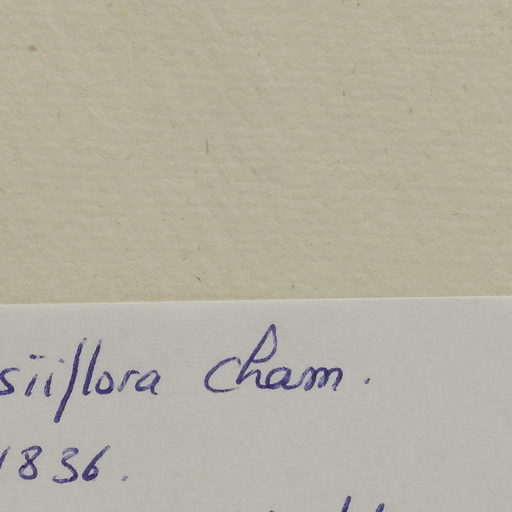 siiflora Cham.
1836.